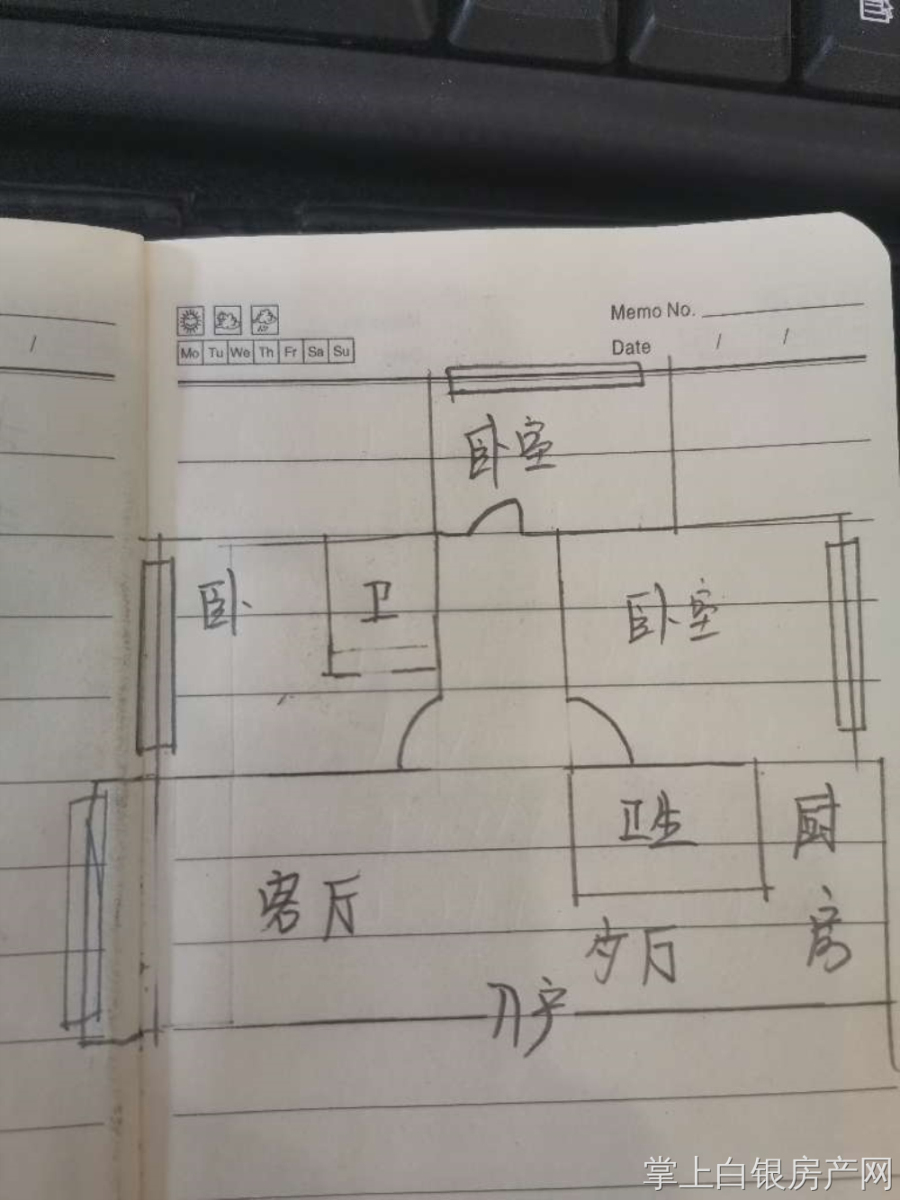 Memo No.
Mo Tu We Th Fr Sa Su
Date / /
卧室
卧 卫 卧室
卫生 厨房
客厅 歺厅
入户
掌上白银房产网